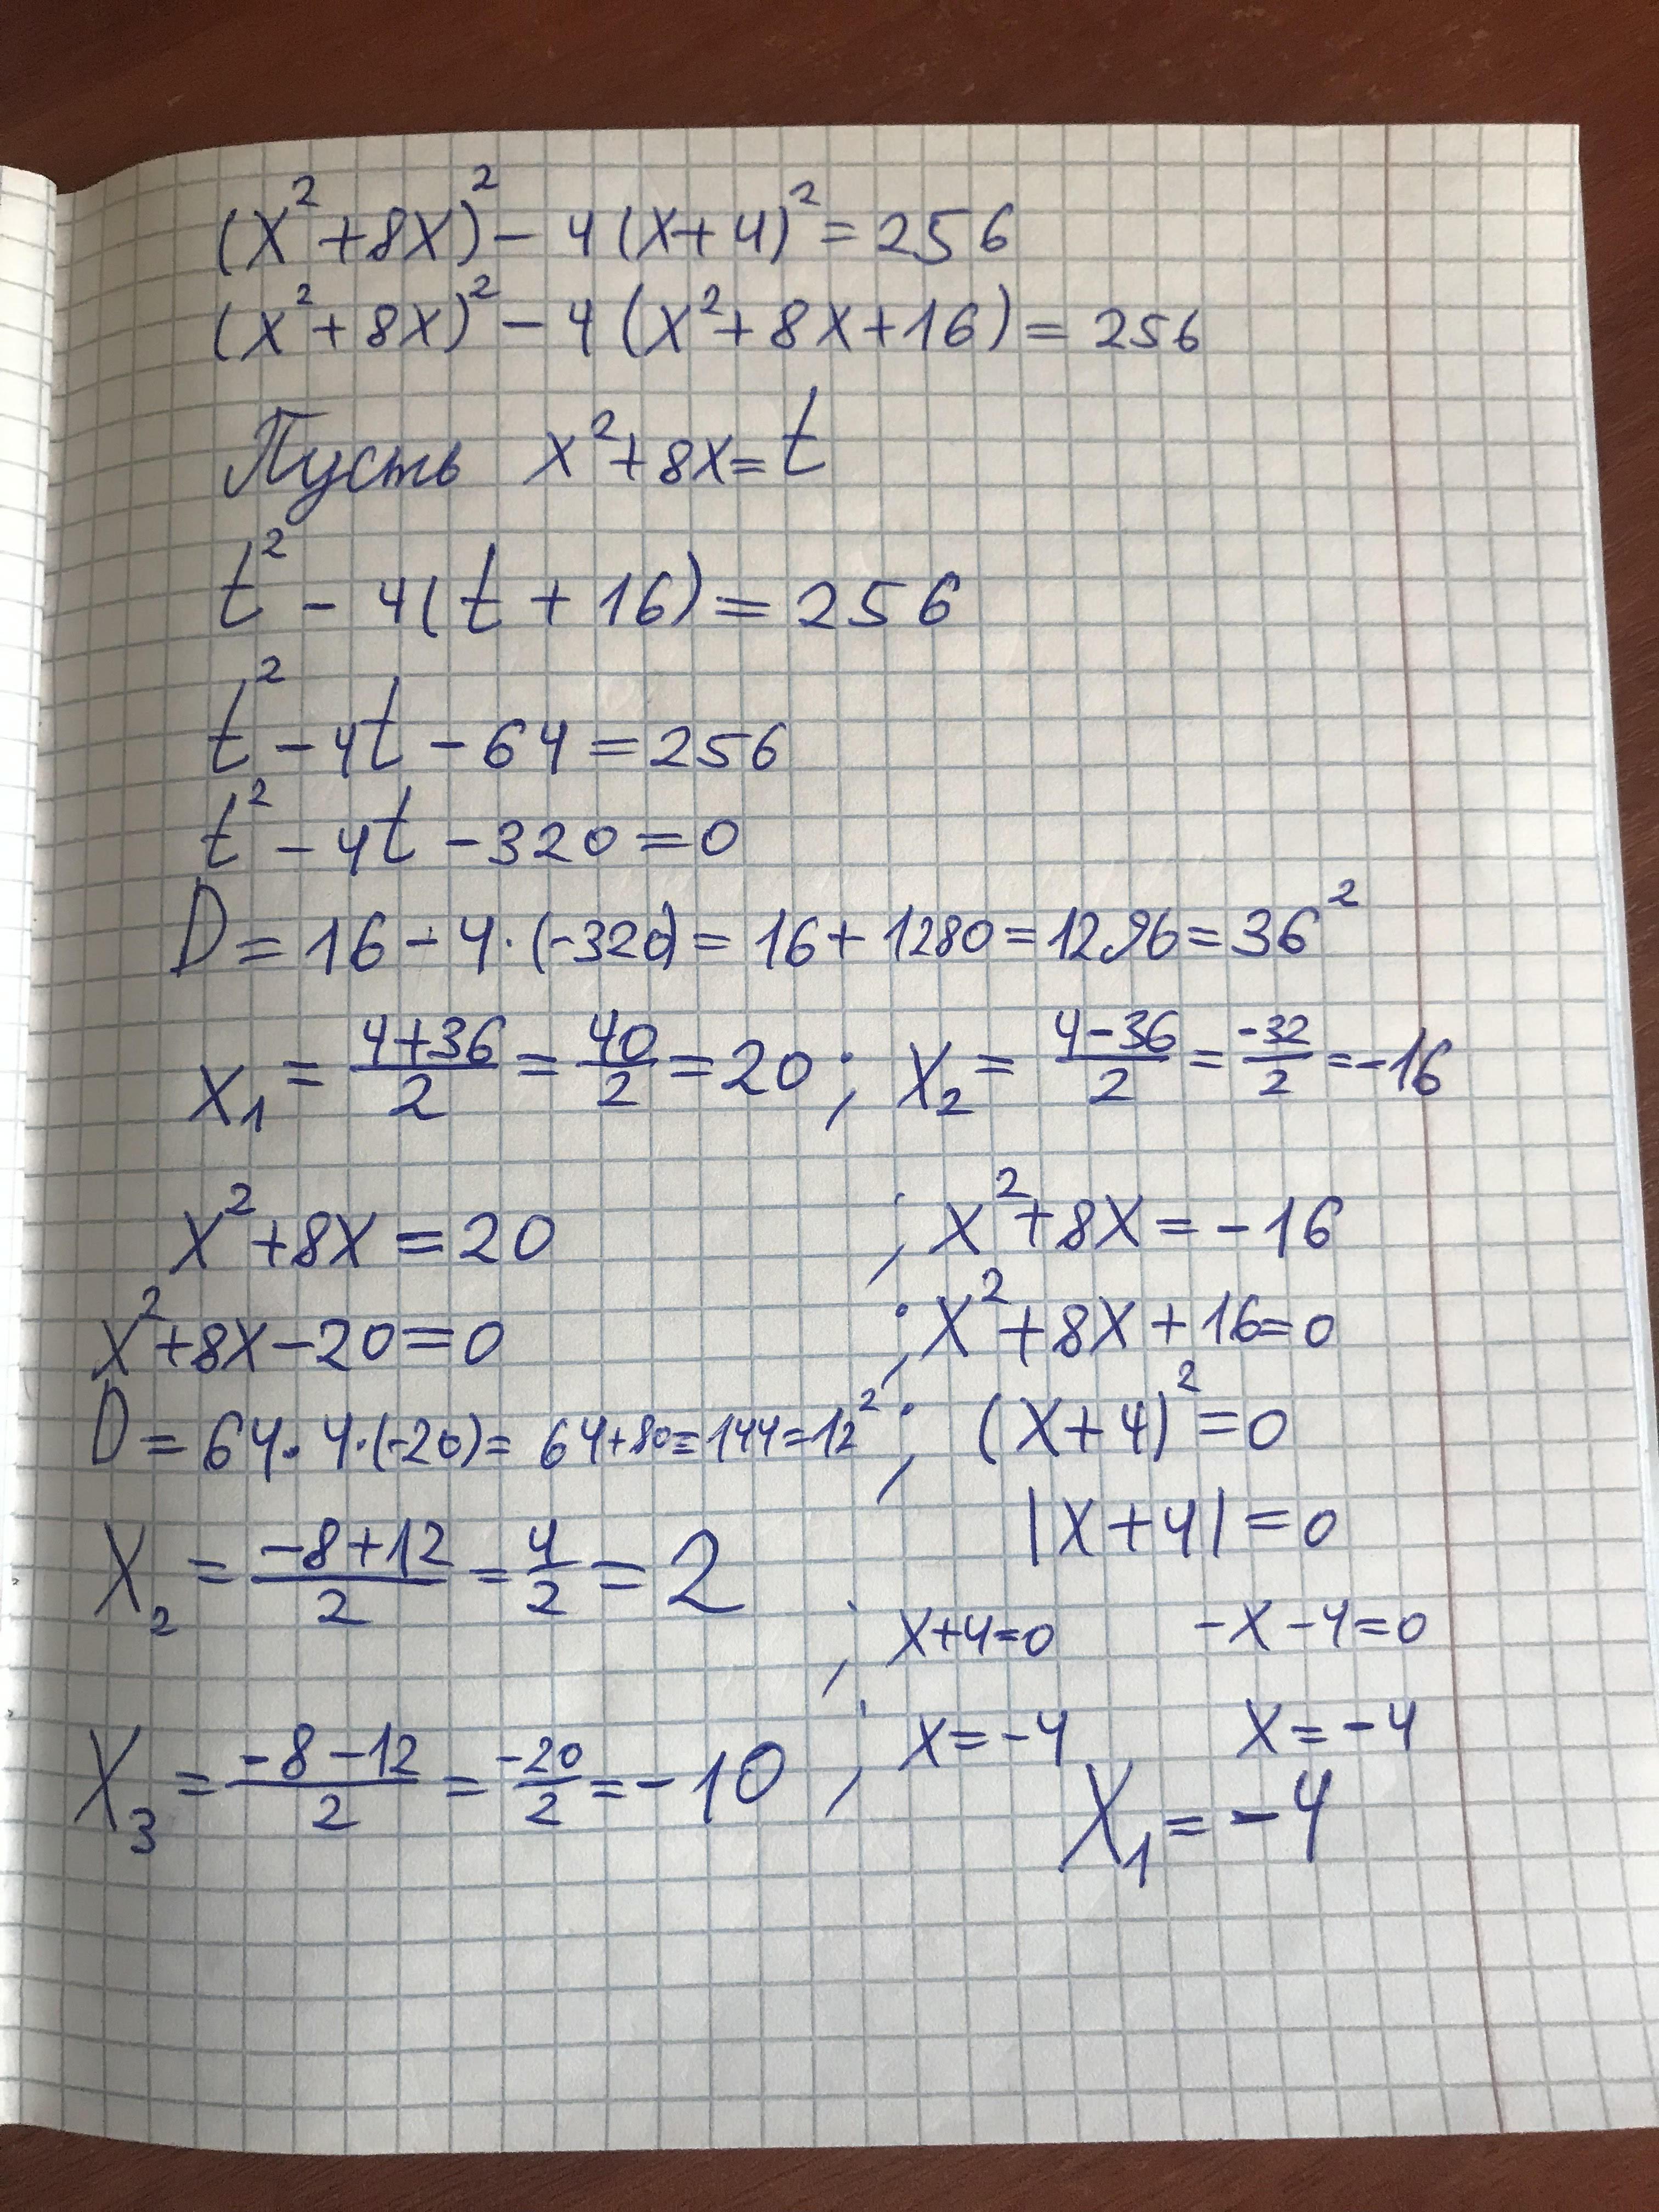 (x²+8x)² - 4(x+4)² = 256
(x²+8x)² - 4(x²+8x+16) = 256
Пусть x²+8x=t
t² - 4(t+16) = 256
t² - 4t - 64 = 256
t² - 4t - 320 = 0
D = 16 - 4·(-320) = 16 + 1280 = 1296 = 36²
x₁ = (4+36)/2 = 40/2 = 20; x₂ = (4-36)/2 = -32/2 = -16
x²+8x = 20 ; x²+8x = -16
x²+8x-20=0 ; x²+8x+16=0
D = 64·4·(-20) = 64+80=144=12² ; (x+4)²=0
|x+4| = 0
x₂ = (-8+12)/2 = 4/2 = 2
; x+4=0 -x-4=0
x₃ = (-8-12)/2 = -20/2 = -10 ; x=-4 x=-4
x₁ = -4